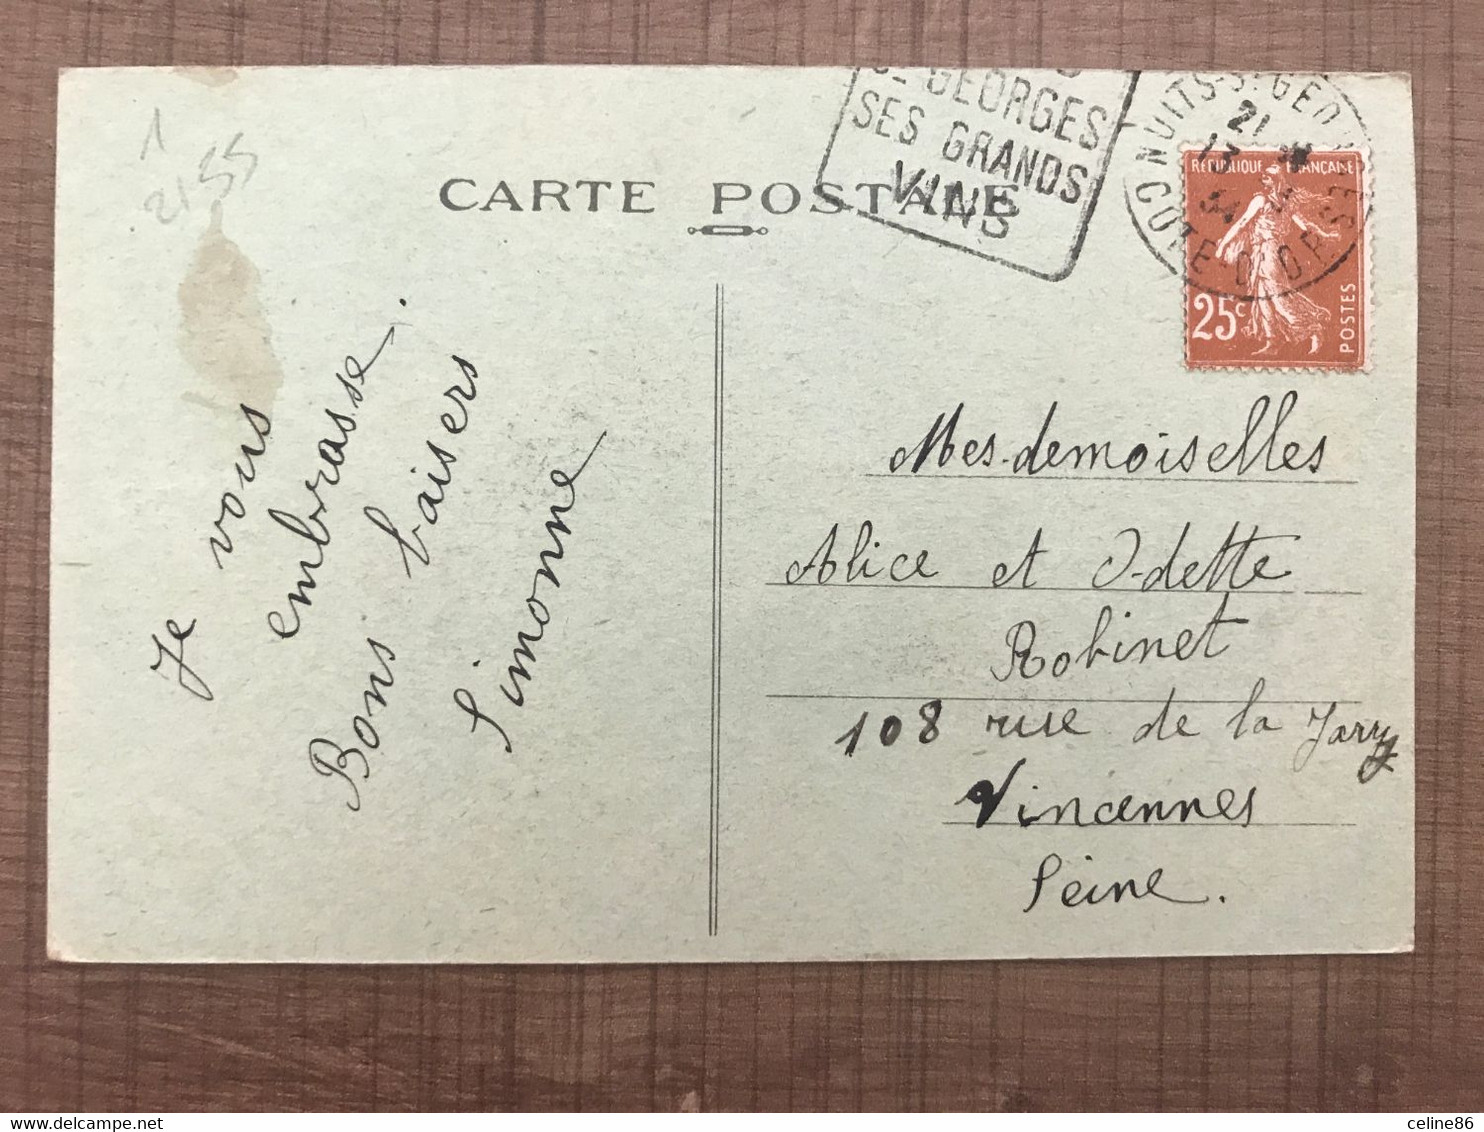 1
2155
CARTE POSTALE
St GEORGES
SES GRANDS
VINS
NUITS-St GEORGES
21
13
34
COTE-D'OR
REPUBLIQUE FRANÇAISE
25c
POSTES
Je vous
embrasse.
Bons baisers
Simonne
Mes-demoiselles
Alice et Odette
Robinet
108 rue de la Jarry
Vincennes
Seine.
delcampe.net
celine86